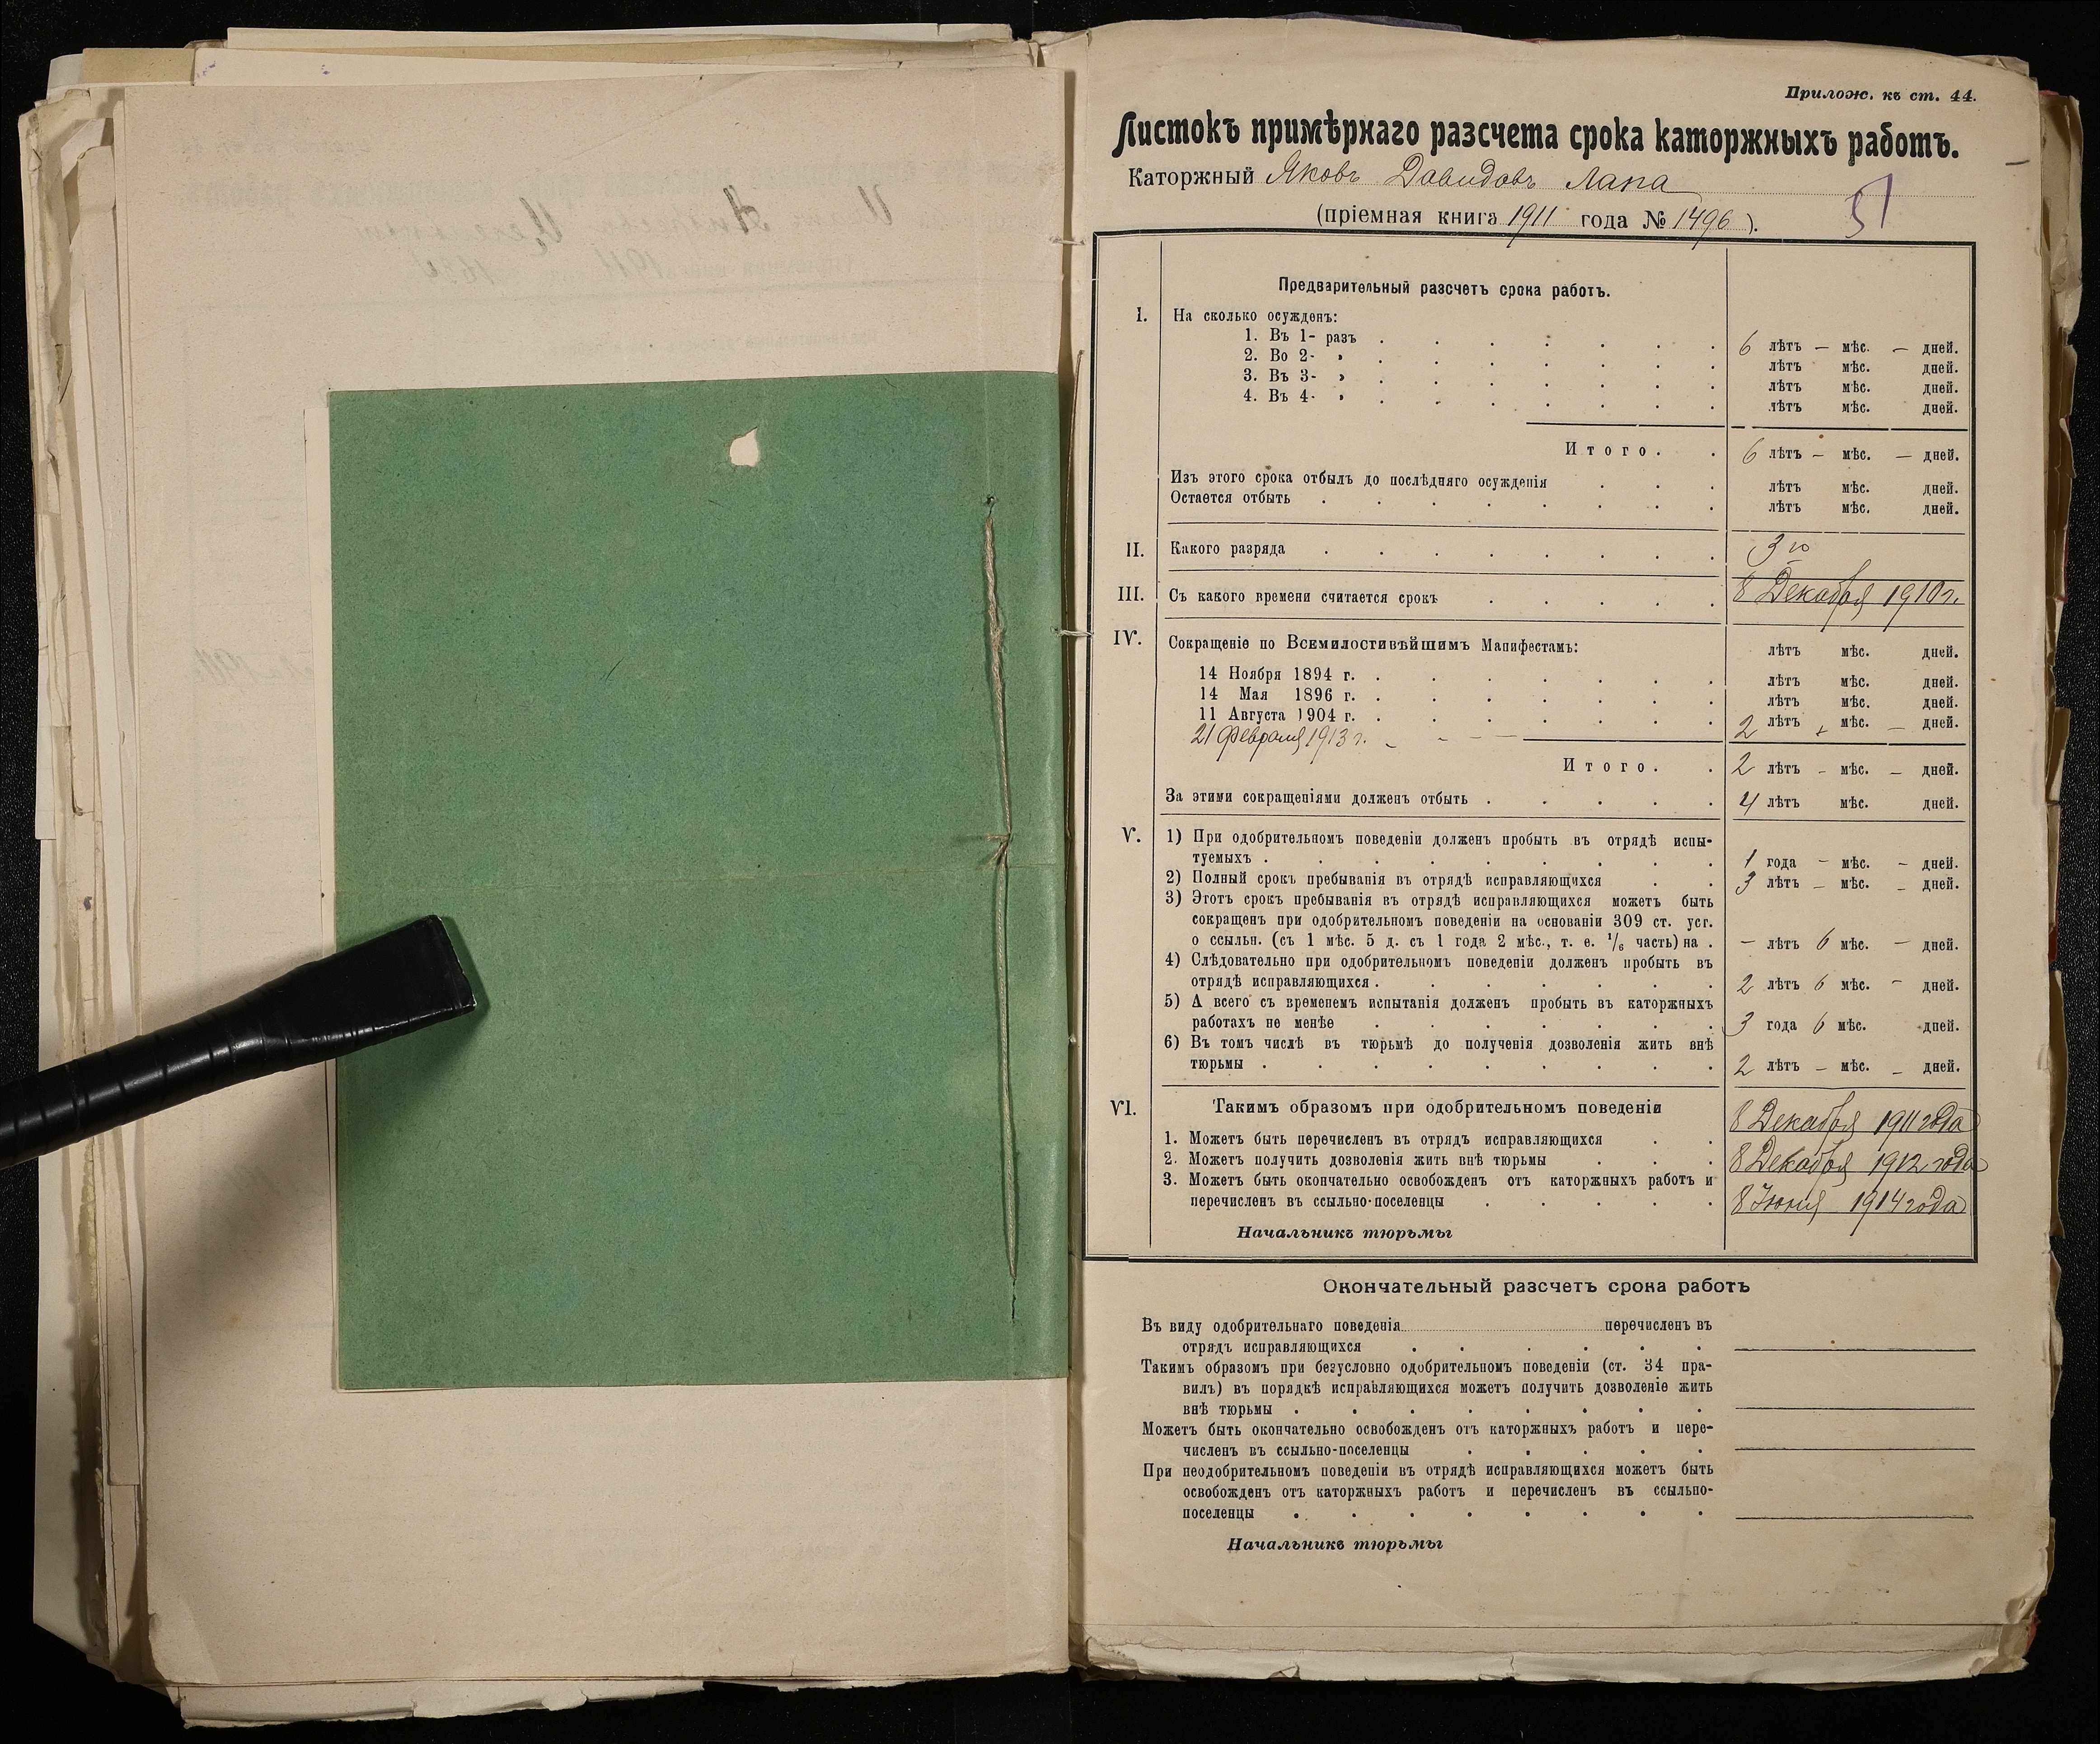 Прилож. къ ст. 44.
Листокъ примѣрнаго разсчета срока каторжныхъ работъ.
Каторжный Яковъ Давидовъ Лапа
51
(пріемная книга 1911 года № 1496).
Предварительный разсчетъ срока работъ.
I. На сколько осужденъ:
1. Въ 1- разъ . . . . . . . 6 лѣтъ — мѣс. — дней.
2. Во 2- » . . . . . . . лѣтъ мѣс. дней.
3. Въ 3- » . . . . . . . лѣтъ мѣс. дней.
4. Въ 4- » . . . . . . . лѣтъ мѣс. дней.
Итого. . 6 лѣтъ — мѣс. — дней.
Изъ этого срока отбылъ до послѣдняго осужденія . . . лѣтъ мѣс. дней.
Остается отбыть . . . . . . . . лѣтъ мѣс. дней.
II. Какого разряда . . . . . . . . 3го
III. Съ какого времени считается срокъ . . . . . 8 Декабря 1910 г.
IV. Сокращеніе по Всемилостивѣйшимъ Манифестамъ: лѣтъ мѣс. дней.
14 Ноября 1894 г. . . . . . . . лѣтъ мѣс. дней.
14 Мая 1896 г. . . . . . . . лѣтъ мѣс. дней.
11 Августа 1904 г. . . . . . . . 2 лѣтъ мѣс. — дней.
21 Февраля 1913 г. - - - —
Итого. . 2 лѣтъ — мѣс. — дней.
За этими сокращеніями долженъ отбыть . . . . . 4 лѣтъ мѣс. дней.
V. 1) При одобрительномъ поведеніи долженъ пробыть въ отрядѣ испы-
туемыхъ . . . . . . . . . 1 года — мѣс. — дней.
2) Полный срокъ пребыванія въ отрядѣ исправляющихся . . 3 лѣтъ — мѣс. — дней.
3) Этотъ срокъ пребыванія въ отрядѣ исправляющихся можетъ быть
сокращенъ при одобрительномъ поведеніи на основаніи 309 ст. уст.
о ссыльн. (съ 1 мѣс. 5 д. съ 1 года 2 мѣс., т. е. 1/6 часть) на . — лѣтъ 6 мѣс. — дней.
4) Слѣдовательно при одобрительномъ поведеніи долженъ пробыть въ
отрядѣ исправляющихся . . . . . . . 2 лѣтъ 6 мѣс. — дней.
5) А всего съ временемъ испытанія долженъ пробыть въ каторжныхъ
работахъ не менѣе . . . . . . . 3 года 6 мѣс. дней.
6) Въ томъ числѣ въ тюрьмѣ до полученія дозволенія жить внѣ
тюрьмы . . . . . . . . . 2 лѣтъ — мѣс. — дней.
VI. Такимъ образомъ при одобрительномъ поведеніи
1. Можетъ быть перечисленъ въ отрядъ исправляющихся . . 8 Декабря 1911 года
2. Можетъ получить дозволенія жить внѣ тюрьмы . . . 8 Декабря 1912 года
3. Можетъ быть окончательно освобожденъ отъ каторжныхъ работъ и
перечисленъ въ ссыльно-поселенцы . . . . . 8 Іюня 1914 года
Начальникъ тюрьмы
Окончательный разсчетъ срока работъ
Въ виду одобрительнаго поведенія перечисленъ въ
отрядъ исправляющихся . . . . . .
Такимъ образомъ при безусловно одобрительномъ поведеніи (ст. 34 пра-
вилъ) въ порядкѣ исправляющихся можетъ получить дозволеніе жить
внѣ тюрьмы . . . . . . . .
Можетъ быть окончательно освобожденъ отъ каторжныхъ работъ и пере-
численъ въ ссыльно-поселенцы . . . . .
При неодобрительномъ поведеніи въ отрядѣ исправляющихся можетъ быть
освобожденъ отъ каторжныхъ работъ и перечисленъ въ ссыльно-
поселенцы . . . . . . . .
Начальникъ тюрьмы